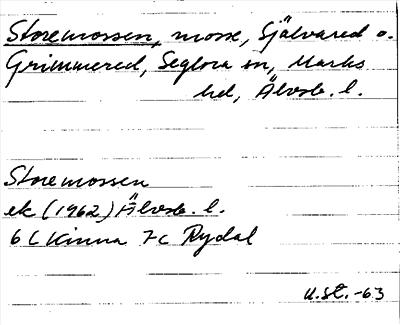 Storemossen, mosse, Självared o.
Grimmered, Seglora sn, Marks
hd, Älvsb. l.
Storemossen
ek (1962) Älvsb. l.
6 C Kinna 7c Rydal
U.St. -63